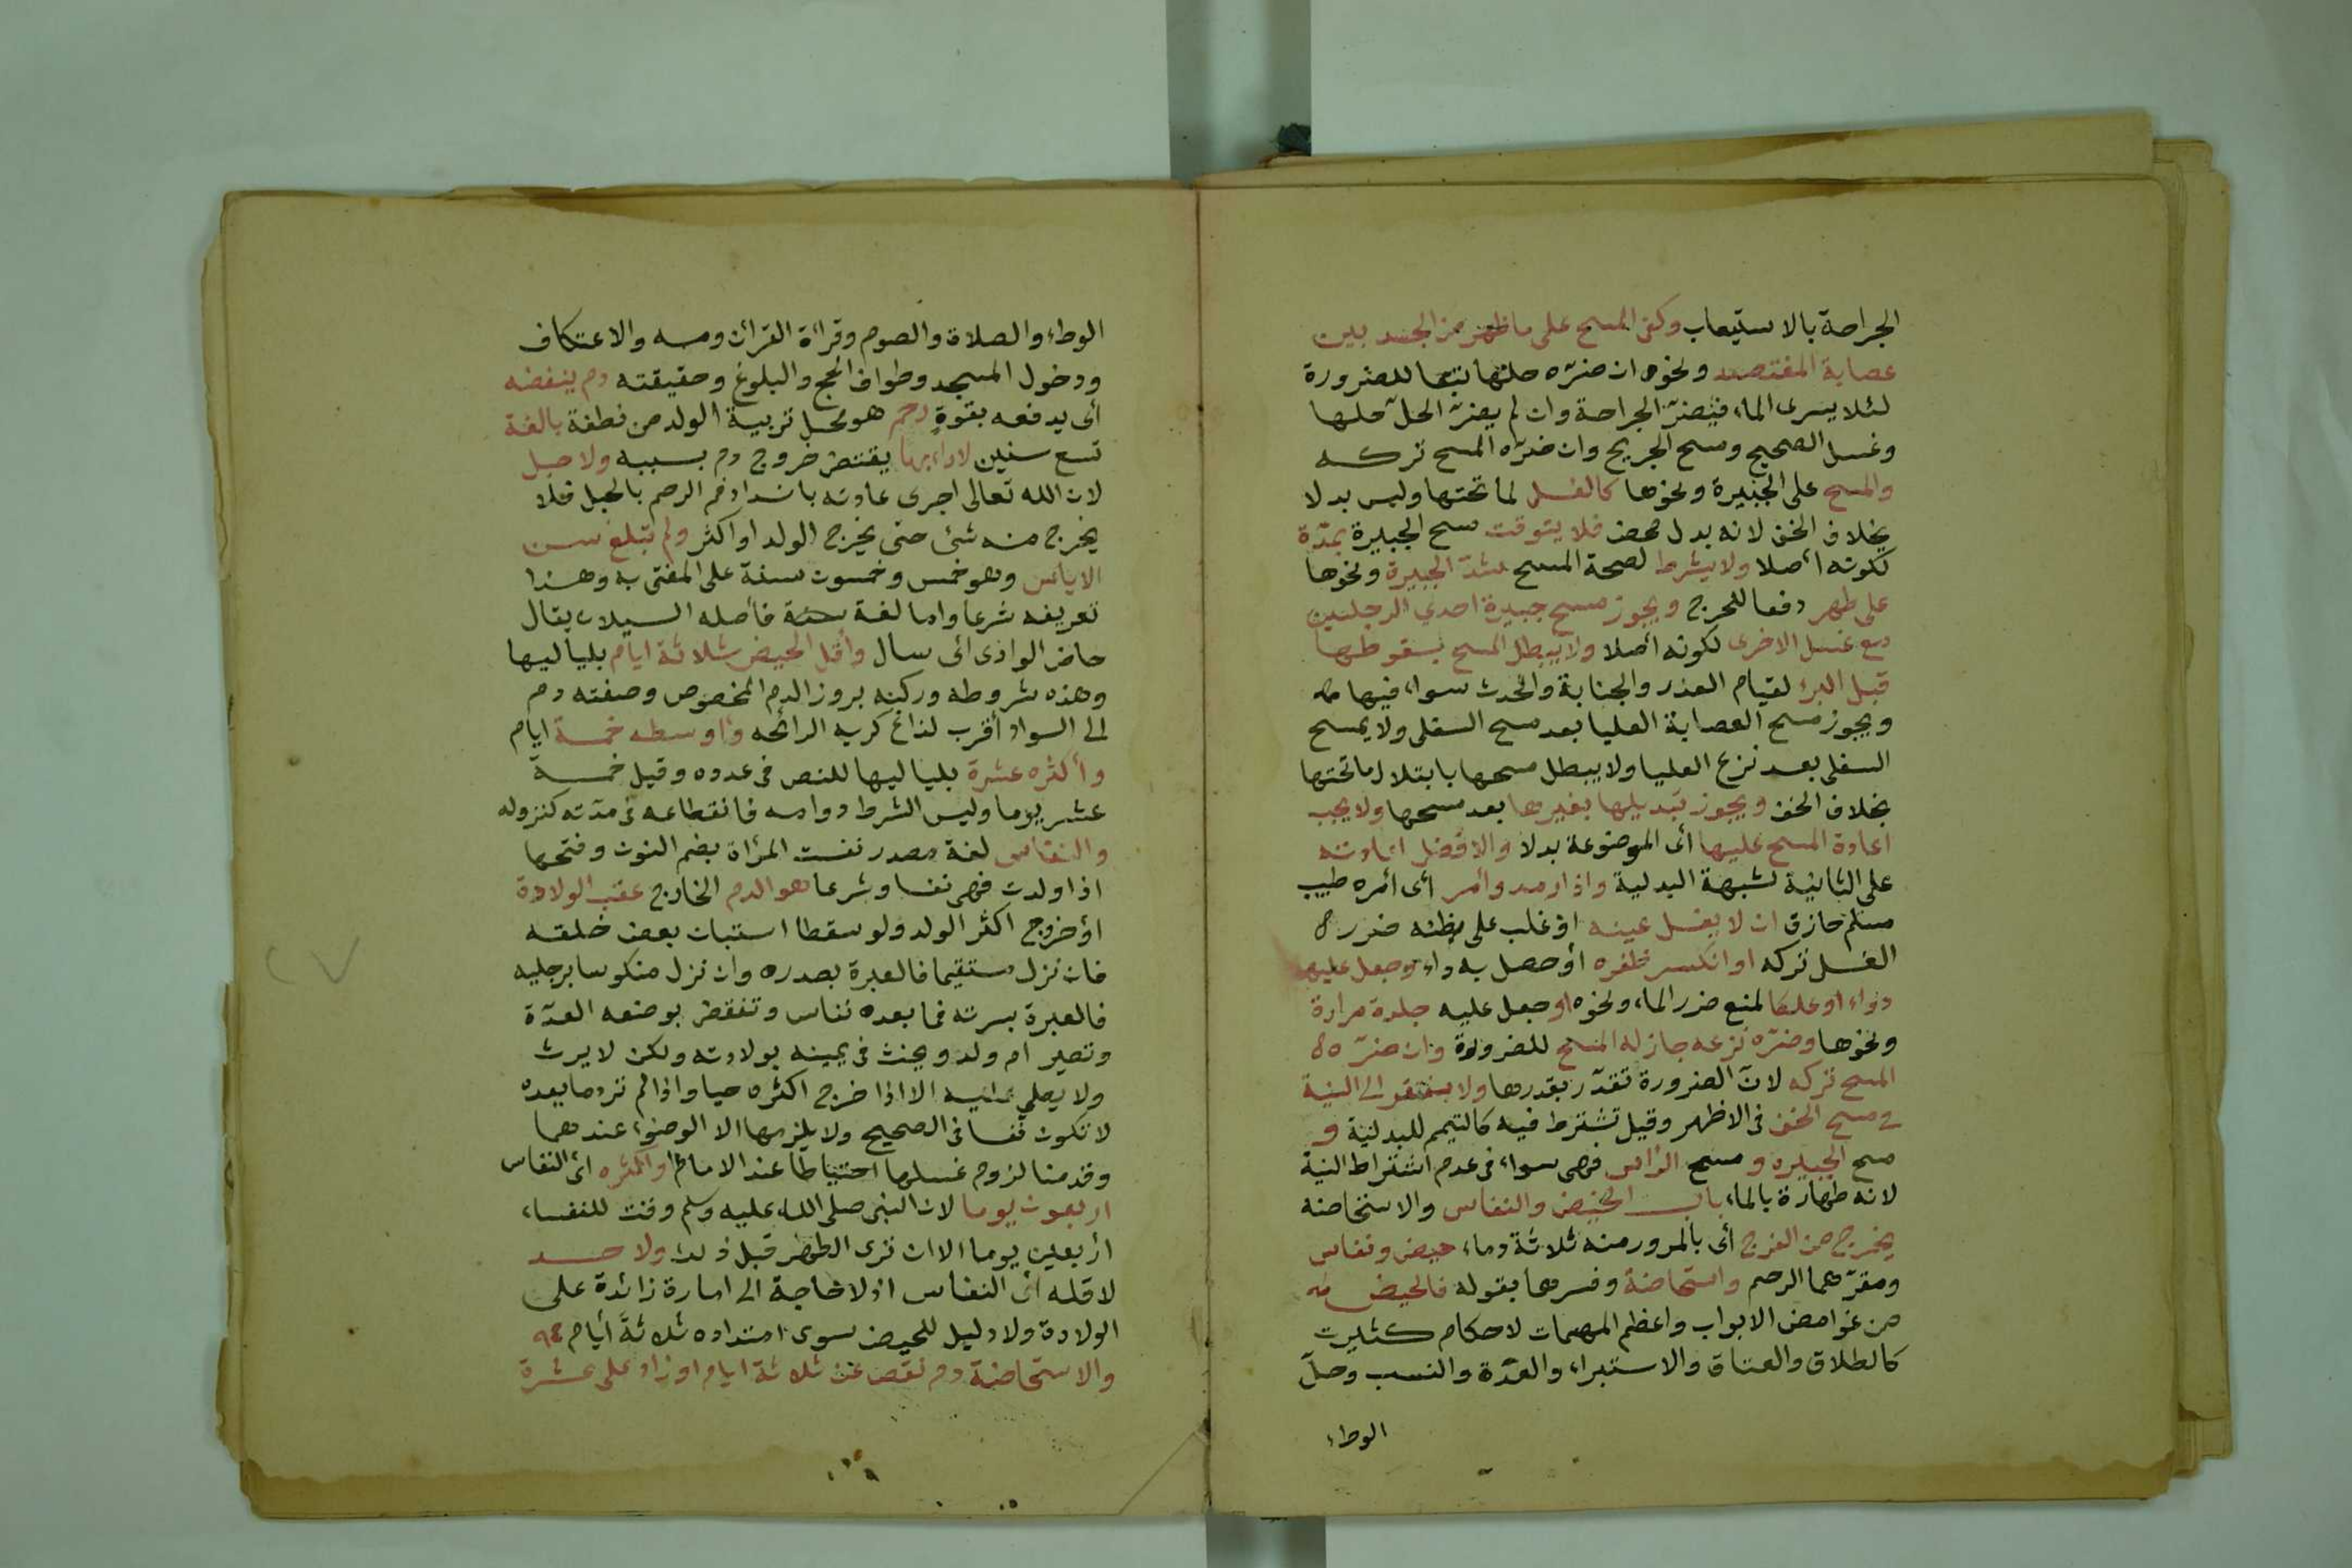 الجراحة بالاستيعاب وكفى المسح على ما ظهر من الجسد بين
عصابة المفتصد ونحوه ان ضره حلها تبعا للضرورة
لئلا يسرى الماء فيضر الجراحة وان لم يضر الحل حلها
وغسل الصحيح ومسح الجريح وان ضره المسح تركه
والمسح على الجبيرة ونحوها كالغسل لما تحتها وليس بدلا
بخلاف الخف لانه بدل محض فلا يتوقت مسح الجبيرة بمدة
لكونه أصلا ولا يشرط لصحة المسح شد الجبيرة ونحوها
على طهر دفعا للحرج ويجوز مسح جبيرة احدى الرجلين
مع غسل الاخرى لكونه أصلا ولا يبطل المسح بسقوطها
قبل البرء لقيام العذر والجنابة والحدث سواء فيها
ويجوز مسح العصابة العليا بعد مسح السفلى ولا يمسح
السفلى بعد نزع العليا ولا يبطل مسحها بابتلال ما تحتها
بخلاف الخف ويجوز تبديلها بغيرها بعد مسحها ولا يجب
اعادة المسح عليها أى الموضوعة بدلا والافضل اعادته
على الثانية لشبهة البدلية واذا رمد وأمر أى أمره طبيب
مسلم حاذق ان لا يغسل عينه او غلب على ظنه ضرر
الغسل تركه او انكسر ظفره أو حصل به داء وجعل عليه
دواء او علكا لمنع ضرر الماء ونحوه او جعل عليه جلدة مرارة
ونحوها وضره نزعه جاز له المسح للضرورة وان ضره
المسح تركه لان الضرورة تقدر بقدرها ولا يفتقر الى النية
فى مسح الخف فى الاظهر وقيل تشترط فيه كالتيمم للبدلية و
مسح الجبيرة و مسح الرأس فهى سواء فى عدم اشتراط النية
لانه طهارة بالماء باب الحيض والنفاس والاستحاضة
يخرج من الفرج أى بالمرور منه ثلاثة دماء حيض ونفاس
ومقرهما الرحم واستحاضة وفسرها بقوله فالحيض
من غوامض الابواب واعظم المهمات لاحكام كثيرت
كالطلاق والعتاق والاستبراء والعدة والنسب وحل
الوطء
الوطء والصلاة والصوم وقرائة القرائن ومسه والاعتكاف
ودخول المسجد وطواف الحج والبلوغ وحقيقته دم ينفضه
أى يدفعه بقوة رحم هو محل تربية الولد من نطفة بالغة
تسع سنين لا داء بها يقتضى خروج دم بسببه ولا حبل
لان الله تعالى اجرى عادته بانسداد فم الرحم بالحبل فلا
يخرج منه شئ حتى يخرج الولد او اكثر ولم تبلغ سن
الاياس وهو خمس وخمسون سنة على المفتى به وهذا
تعريفه شرعا واما لغة فأصله السيلان يقال
حاض الوادى اى سال وأقل الحيض ثلاثة ايام بلياليها
وهذه شروطه وركنه بروز الدم المخصوص وصفته دم
الى السواد أقرب لذاع كريه الرائحه واوسطه خمسة ايام
وأكثره عشرة بلياليها للنص فى عدده وقيل خمسة
عشر يوما وليس الشرط دوامه فانقطاعه فى مدته كنزوله
والنفاس لغة مصدر نفست المرأة بضم النون وفتحها
اذا ولدت فهى نفسا وشرعا هو الدم الخارج عقب الولادة
أو خروج اكثر الولد ولو سقطا استبان بعض خلقه
فان نزل مستقيما فالعبرة بصدره وان نزل منكوسا برجليه
فالعبرة بسرته فما بعده نفاس وتنقضى بوضعه العدة
وتصير ام ولد ويحنث فى يمينه بولادته ولكن لا يرث
ولا يصلي عليه الا اذا خرج اكثره حيا واذا لم تر دما بعده
لا تكون نفسا فى الصحيح ولا يلزمها الا الوضوء عندهما
وقدمنا لزوم غسلها احتياطا عند الامام واكثره اى النفاس
اربعون يوما لان النبى صلى الله عليه وسلم وقت للنفساء
أربعين يوما الا ان ترى الطهر قبل ذلك ولا حد
لاقله أى النفاس اذ لا حاجة الى امارة زائدة على
الولادة ولا دليل للحيض سوى امتداده ثلاثة أيام
والاستحاضة دم نقص عن ثلاثة ايام او زاد على عشرة